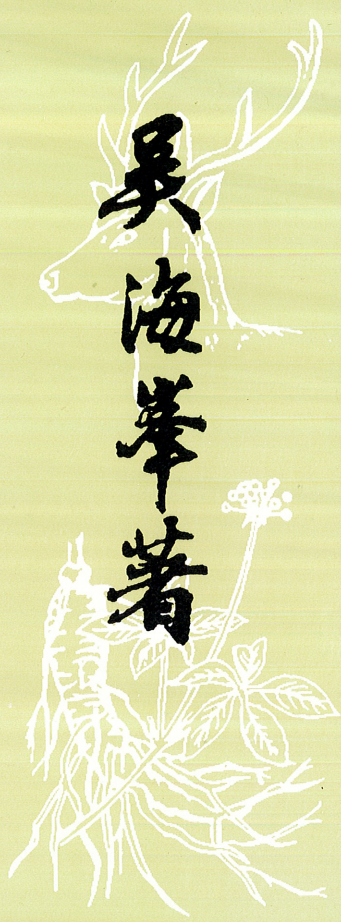 吴海峯著